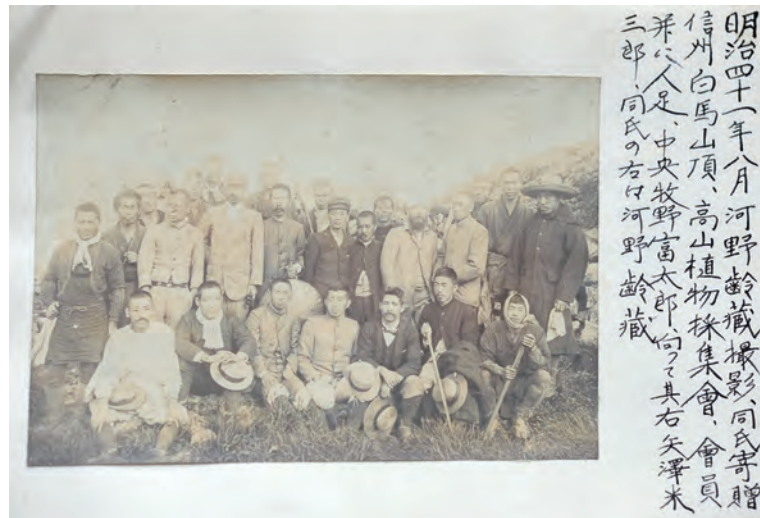 明治四十一年八月河野齡藏撮影、同氏寄贈
信州白馬山頂、高山植物採集會、會員
并に人足、中央牧野富太郎、向って其右矢澤米
三郎、同氏の右は河野齡藏